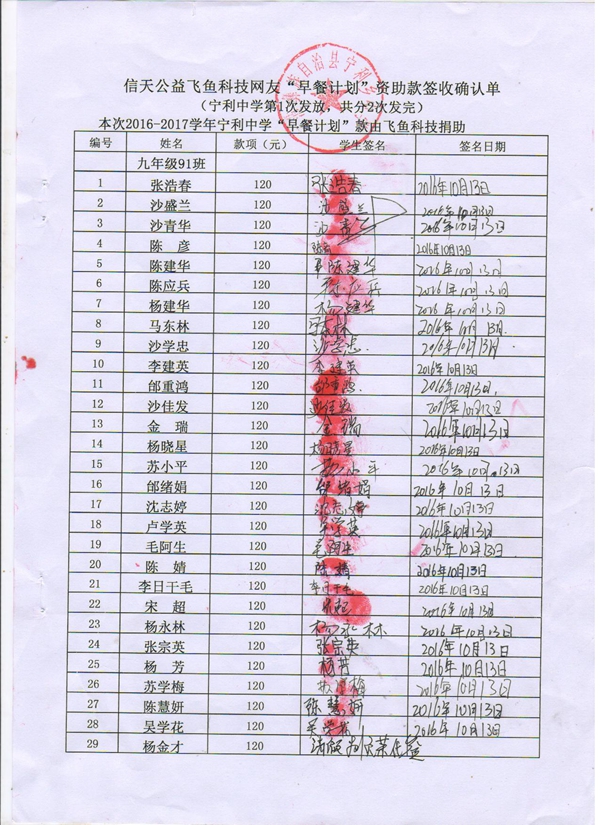 信天公益飞鱼科技网友“早餐计划”资助款签收确认单
（宁利中学第1次发放，共分2次发完）
自治县宁利
本次2016-2017学年宁利中学“早餐计划”款由飞鱼科技捐助
编号 姓名 款项（元） 学生签名 签名日期
九年级91班
1 张浩春 120 张浩春 2016年10月13日
2 沙盛兰 120 沙盛兰 2016年10月13日
3 沙青华 120 2016年10月13日
4 陈 彦 120 陈彦 2016年10月13日
5 陈建华 120 陈建华 2016年10月13日
6 陈应兵 120 陈应兵 2016年10月13日
7 杨建华 120 杨建华 2016年10月13日
8 马东林 120 2016年10月13日.
9 沙学忠 120 沙学忠 2016年10月13日
10 李建英 120 李建英 2016年10月13日
11 邰重鸿 120 邰重鸿 2016年10月13日.
12 沙佳发 120 沙佳发 2016年10月13日
13 金 瑞 120 金瑞 2016年10月13日
14 杨晓星 120 杨晓星 2016年10月13日
15 苏小平 120 苏小平 2016年10月13日
16 邰绪娟 120 邰绪娟 2016年10月13日
17 沈志婷 120 沈志婷 2016年10月13日
18 卢学英 120 卢学英 2016年10月13日
19 毛阿生 120 毛阿生 2016年10月13日
20 陈 婧 120 陈婧 2016年10月13日
21 李日干毛 120 李日干毛 2016年10月13日
22 宋 超 120 宋超 2016年10月13日
23 杨永林 120 杨永林 2016年10月13日
24 张宗英 120 张宗英 2016年10月13日
25 杨 芳 120 杨芳 2016年10月13日
26 苏学梅 120 苏学梅 2016年10月13日
27 陈慧妍 120 陈慧妍 2016年10月13日
28 吴学花 120 吴学花 2016年10月13日
29 杨金才 120